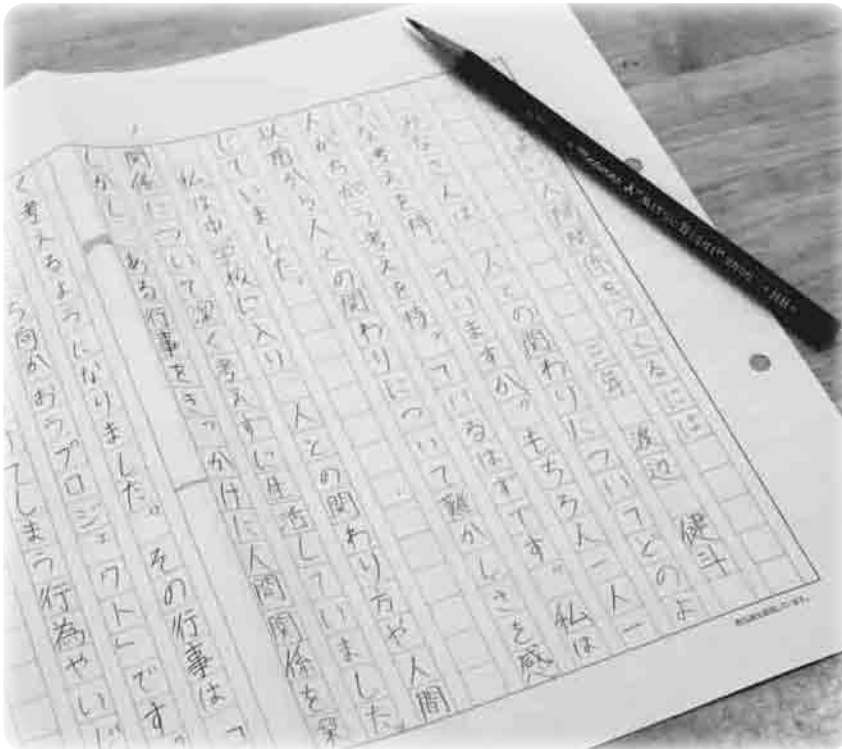 い人間関係をつくるには
三年 渡辺 健斗
みなさんは、人との関わりについてどのよ
うな考えを持っていますか。もちろん一人一
人がちがう考えを持っているはずです。私は
以前から人との関わりについて難かしさを感
じていました。
私は中学校に入り、人との関わり方や人間
関係について深く考えずに生活していました。
しかし、ある行事をきっかけに人間関係を築
く考えるようになりました。その行事は「
ち向かおうプロジェクト」です。
てしまう行為やいじ